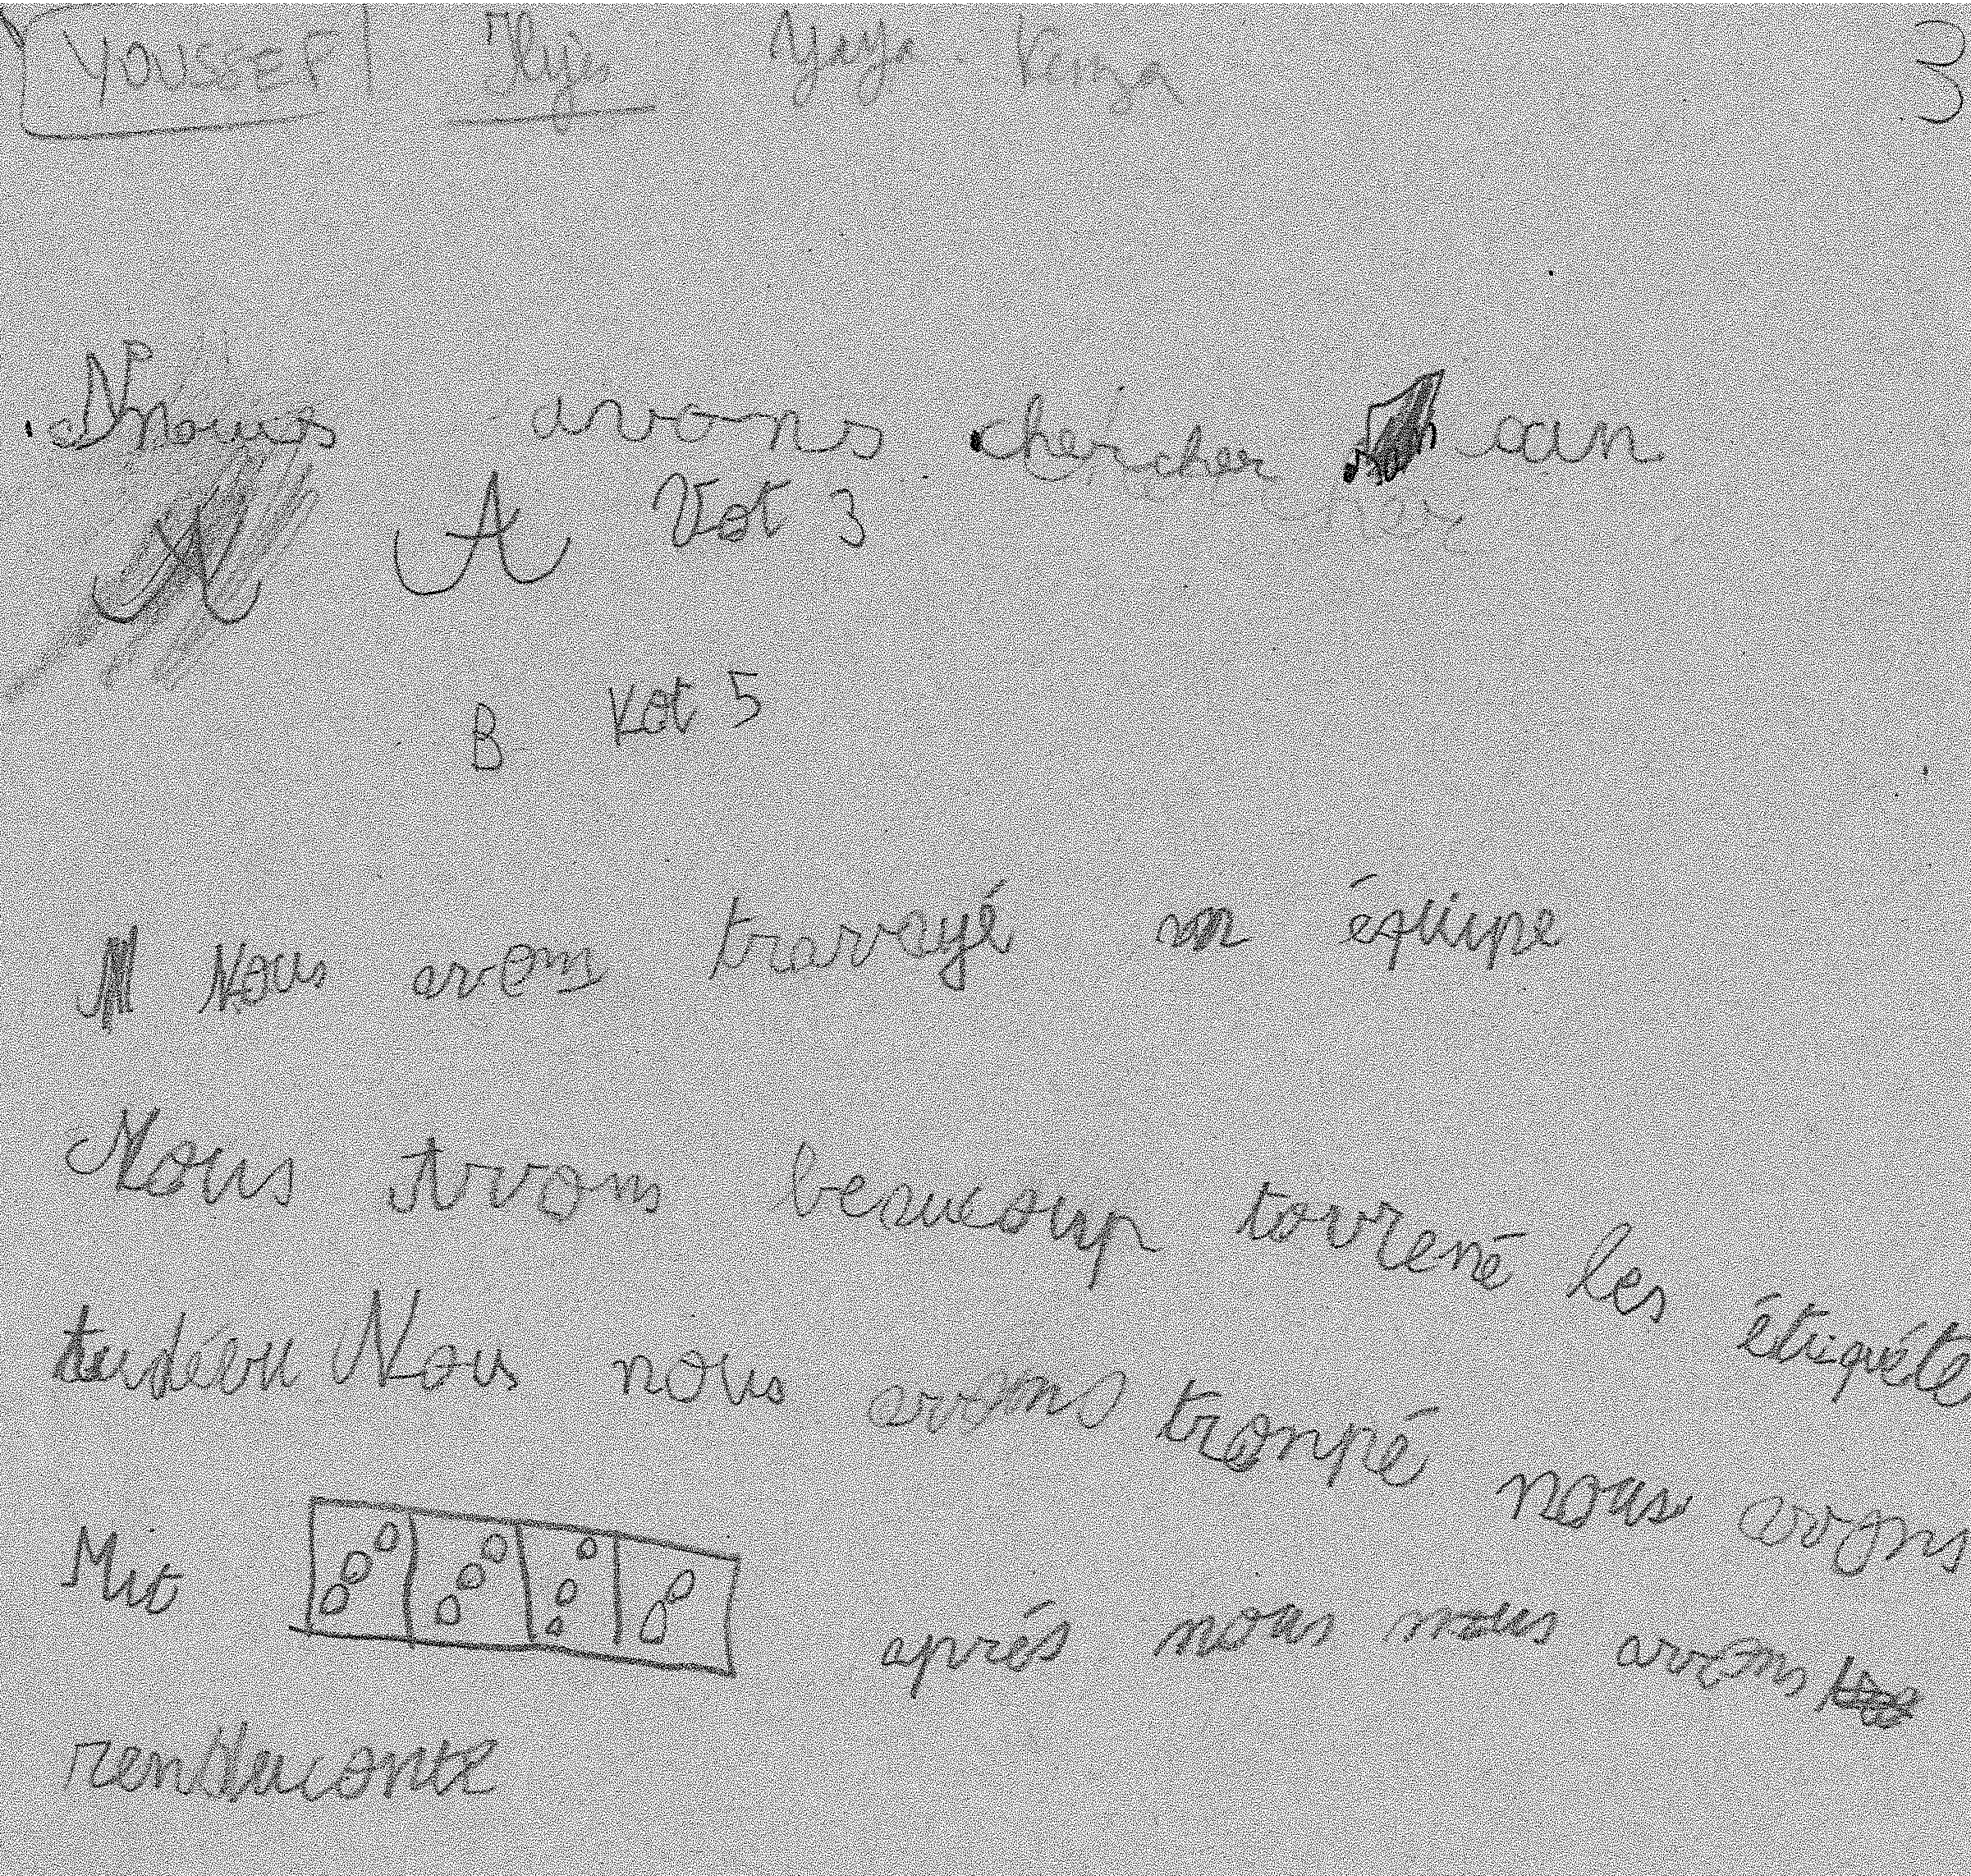 YOUSSEF Ilyès Yaya Kenza 3
Nous avons chercher
A Vot 3
B Vot 5
Nous avons travayé en équipe
Nous avons beaucoup tourrené les étiquéte
audébu Nous nous avons tronpé nous avons
Mit après nous nous avons
renduconte